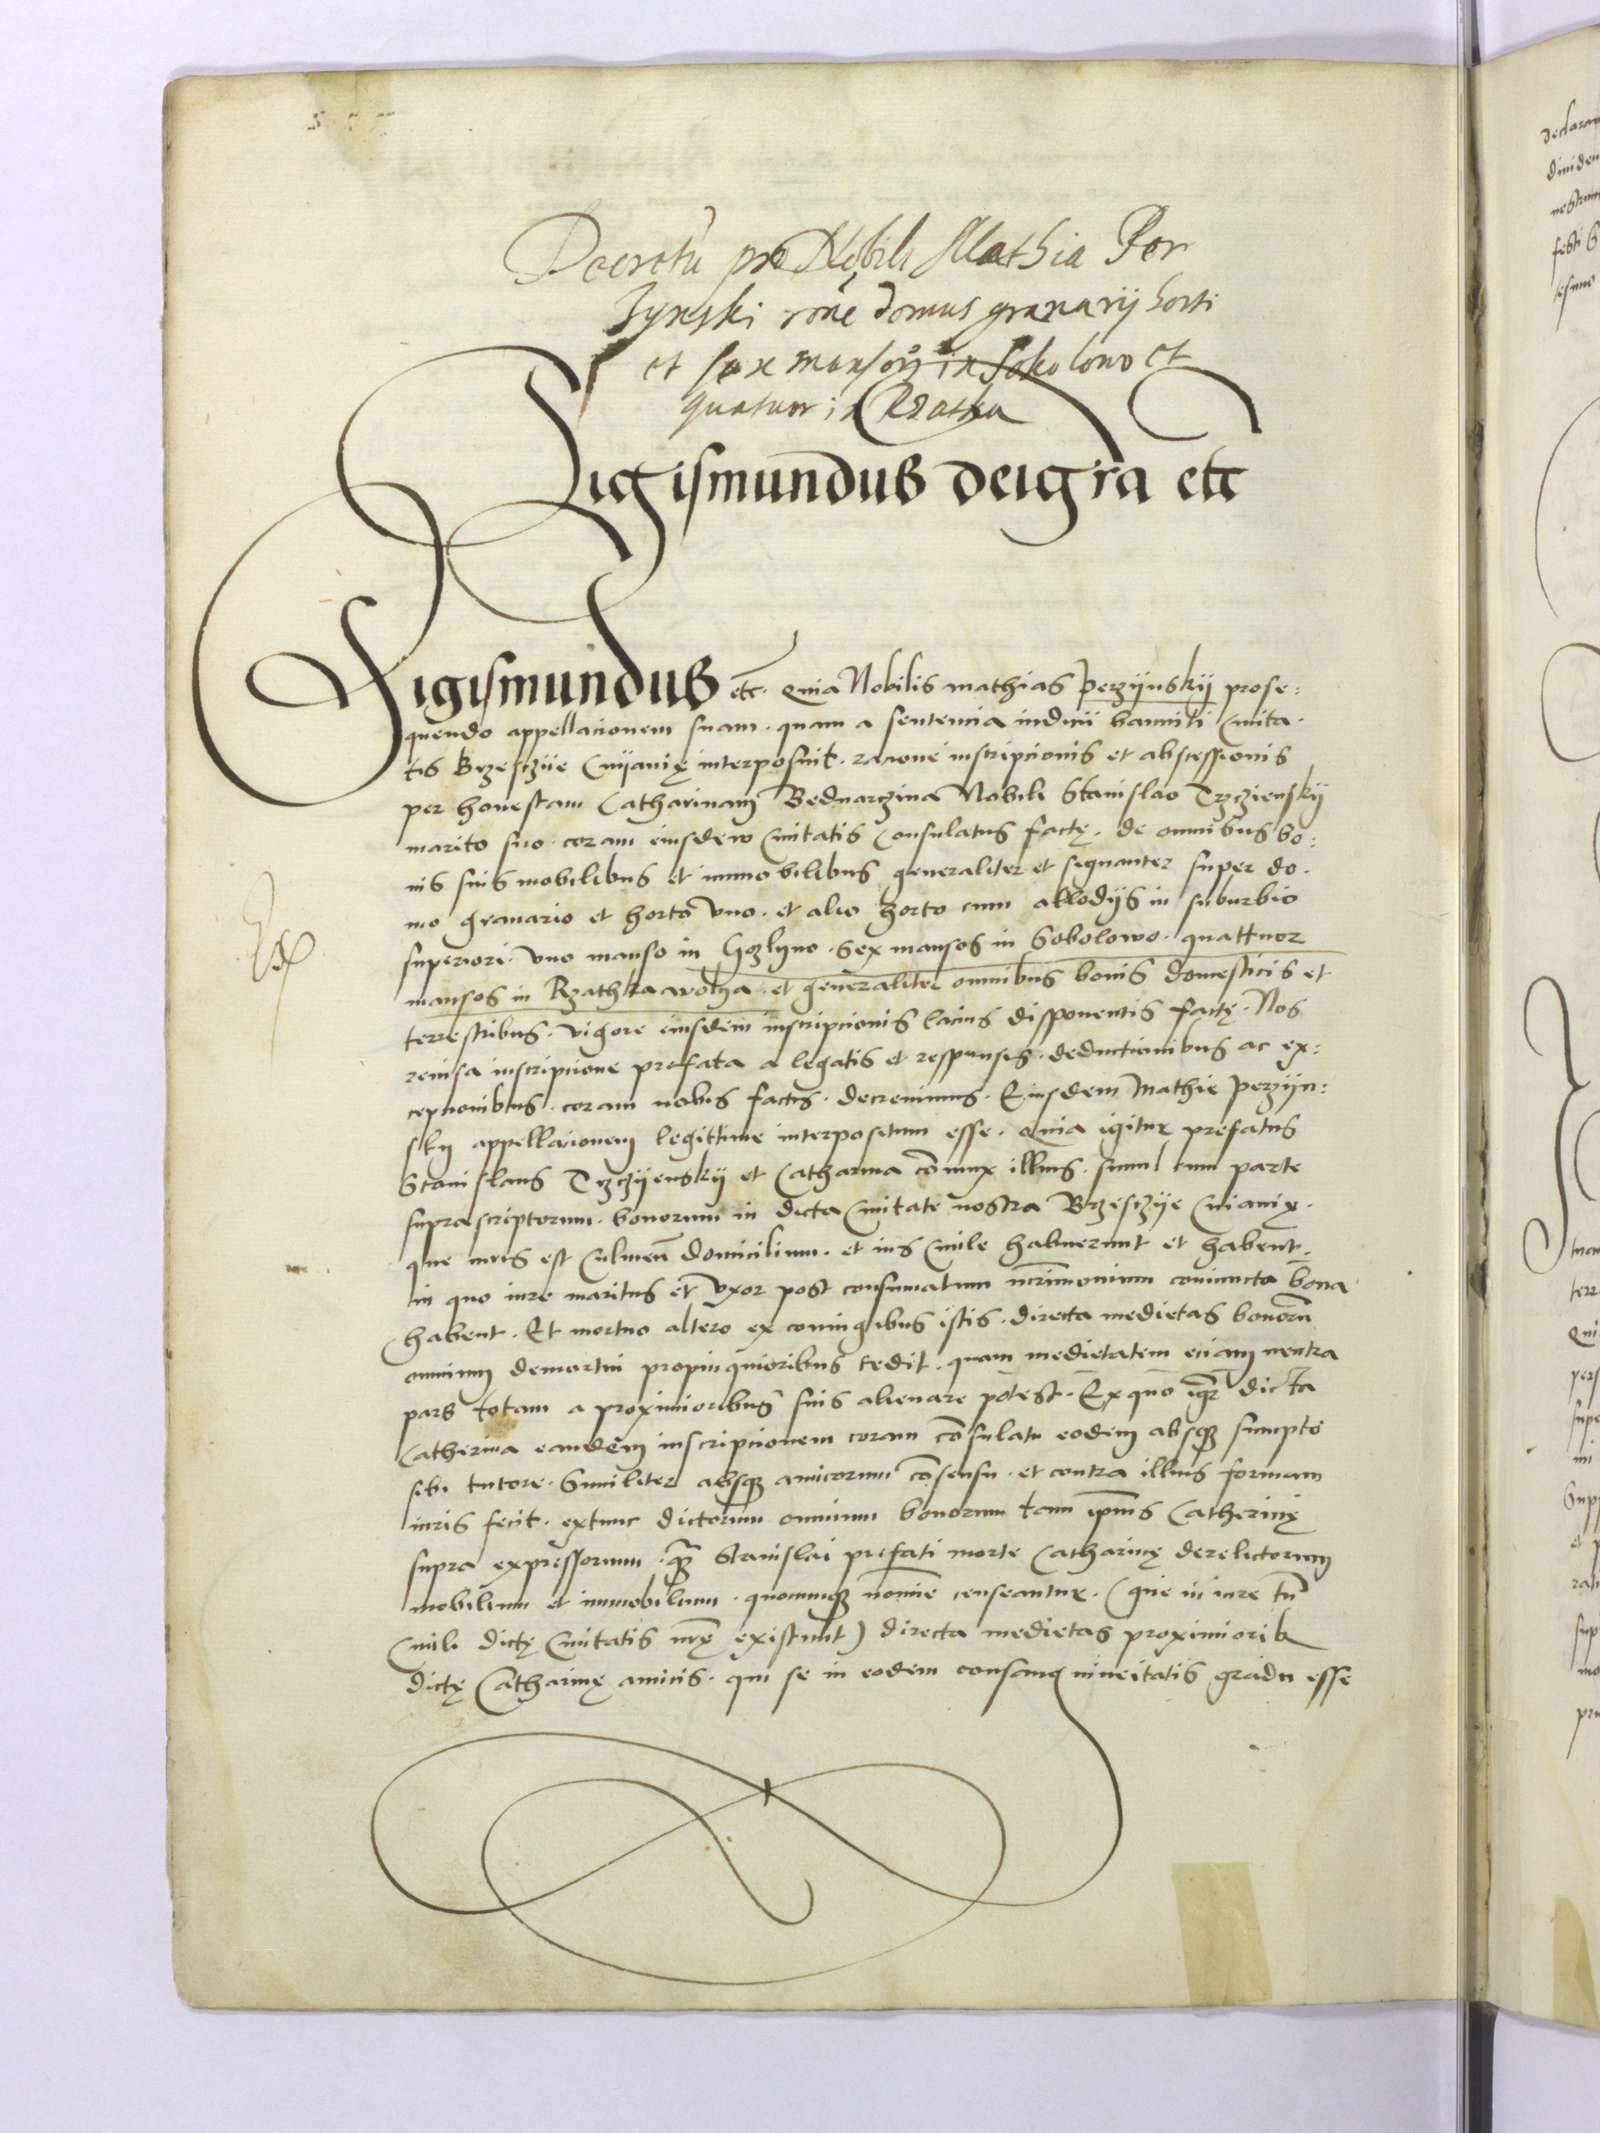 Decretu pro Nobili Mathia Per
zynski rone domus granarij horti
et sex mansorum in Sokolowo et
quatuor in Rzatka
Sigismundus dei gra etc
Sigismundus etc. Quia Nobilis mathias Perzijnskij prose:
quendo appellacionem suam. quam a sententia iudicii banniti Civita.
tis Brzesczije Cuijavię interposuit. racione inscripcionis et abscessionis
per honestam Catharinam Bednarzina Nobili Stanislao Trzczienskij
marito suo. coram eiusdem Civitatis Consulatus factę. de omnibus bo:
nis suis mobilibus et immobilibus generaliter et signanter super do.
mo granario et horto uno. et alio horto cum allodijs in suburbio
superiori. uno manso in Gozlyno. Sex mansos in Sokolowo. quattuor
mansos in Rzathka et generaliter omnibus bonis domesticis et
terrestribus. vigore eiusdem inscripcionis lacius disponentis factę. Nos
reuisa inscripcione prefata allegatis et responsis. deductionibus ac ex:
cepcionibus. coram nobis factis. decreuimus. Eiusdem Mathie Perzijn:
skij appellacionem legittime interpositum esse. Quia igitur prefatus
Stanislaus Trzczijenskij et Catharina coniunx illius. simul cum parte
suprascriptorum. bonorum in dicta Civitate nostra Brzesczije Cuiavię.
que iuris est Culmen domicilium. et ius Civile habuerunt et habent.
in quo iure maritus et uxor post consumatum mrimonium coniuncta bona
habent. Et mortuo altero ex coniugibus istis. directa medietas bonoru
omnium demortui propinquioribus cedit. quam medietatem eciam neutra
pars totam a proximioribus suis alienare potest. Ex quo igr dicta
Catherina eandem inscripcionem coram Consulatu eodem absq sumpto
sibi tutore. Similiter absq amicorum cosensu. et contra illius formam
iuris fecit. extunc dictorum omnium bonorum tam ipius Catherinę
supra expressorum. q Stanislai prefati morte Catharinę derelictorum
mobilium et immobilium. quocumq nomine censeantur. (que in iure tn
Civili dictę Civitatis nrę existunt) directa medietas proximiorib
dictę Catharinę amicis. qui se in eodem consanguineitatis gradu esse